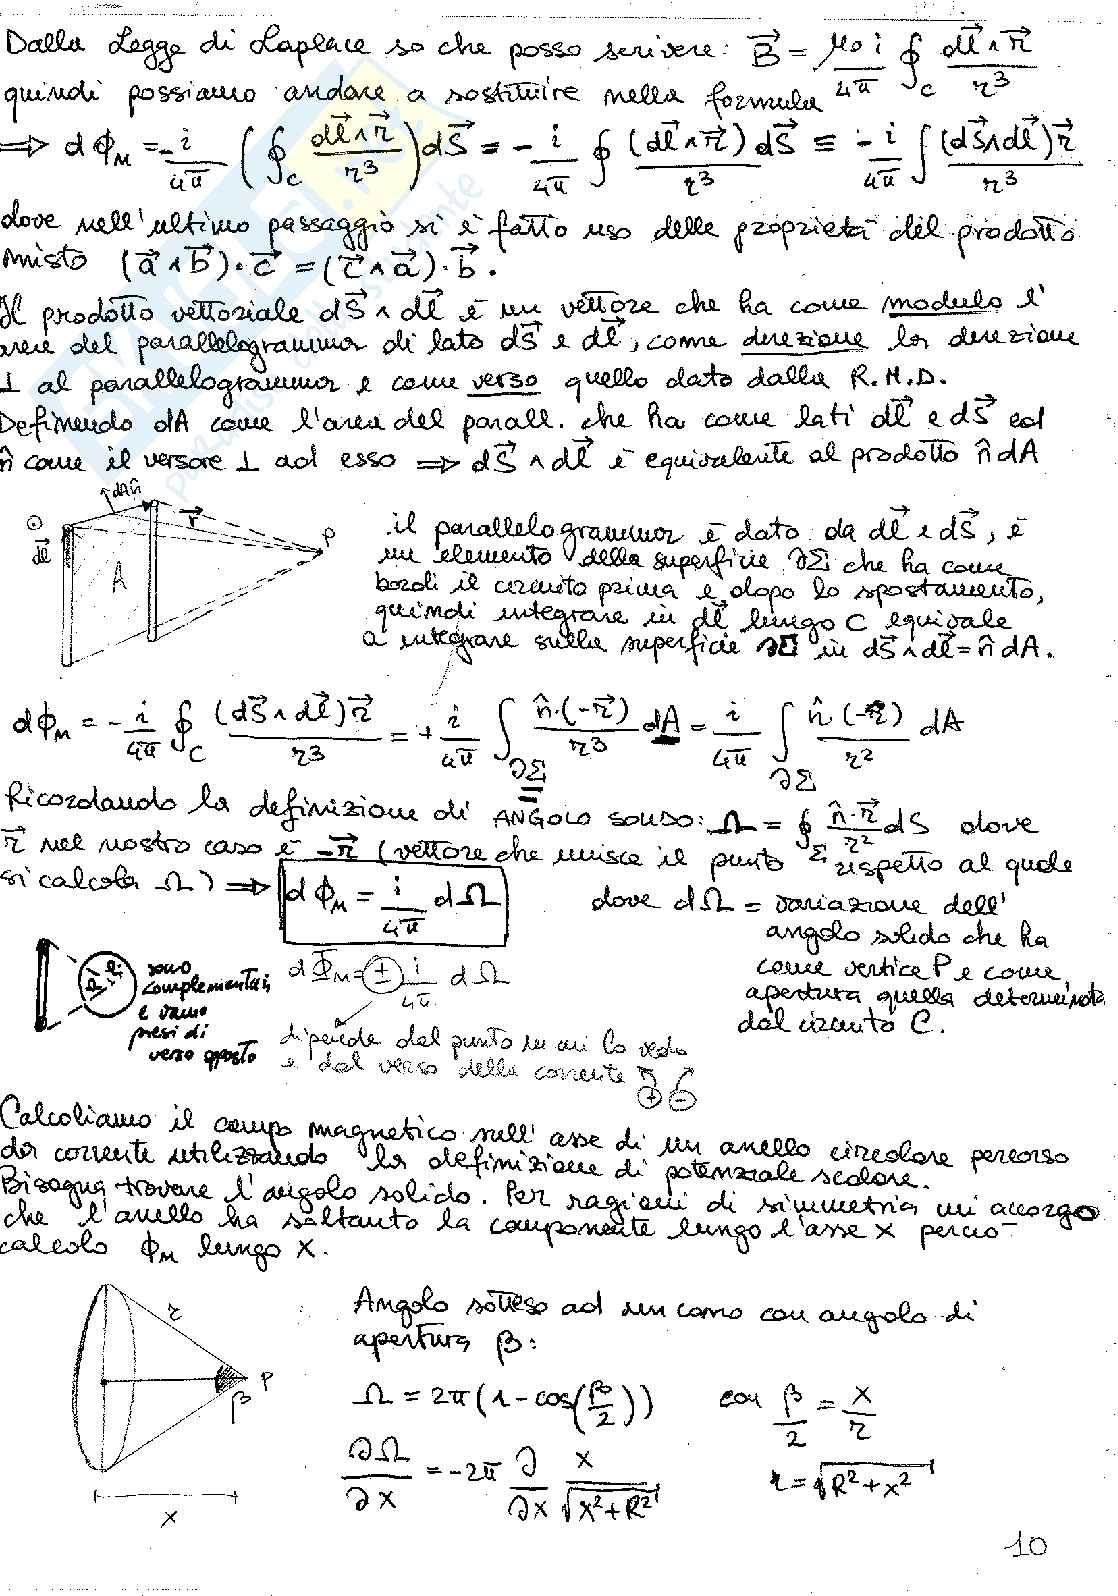 Dalla Legge di Laplace so che posso scrivere: B⃗ = μ₀ i / 4π ∮_C dl⃗ ∧ r⃗ / r³
quindi possiamo andare a sostituire nella formula
⟹ dΦ_M = - i / 4π (∮_C dl⃗ ∧ r⃗ / r³) dS⃗ = - i / 4π ∮ (dl⃗ ∧ r⃗) dS⃗ / r³ ≡ - i / 4π ∫ (dS⃗ ∧ dl⃗) r⃗ / r³
dove nell'ultimo passaggio si è fatto uso delle proprietà del prodotto
misto (a⃗ ∧ b⃗) · c⃗ = (c⃗ ∧ a⃗) · b⃗ .
Il prodotto vettoriale dS⃗ ∧ dl⃗ è un vettore che ha come modulo l'
area del parallelogramma di lato dS⃗ e dl⃗, come direzione la direzione
⊥ al parallelogramma e come verso quello dato dalla R.M.D.
Definendo dA come l'area del parall. che ha come lati dl⃗ e dS⃗ ed
n̂ come il versore ⊥ ad esso ⟹ dS⃗ ∧ dl⃗ è equivalente al prodotto n̂ dA
dA n̂
r⃗
P
dl⃗
A
il parallelogramma è dato da dl⃗ e dS⃗, è
un elemento della superficie ∂Σ che ha come
bordi il circuito prima e dopo lo spostamento,
quindi integrare in dl⃗ lungo C equivale
a integrare sulla superficie ∂Σ in dS⃗ ∧ dl⃗ = n̂ dA.
dΦ_M = - i / 4π ∮_C (dS⃗ ∧ dl⃗) r⃗ / r³ = + i / 4π ∫_∂Σ n̂ · (-r⃗) / r³ dA = i / 4π ∫_∂Σ n̂ (-r̂) / r² dA
Ricordando la definizione di ANGOLO SOLIDO: Ω = ∮_Σ n̂ · r⃗ / r² dS dove
r⃗ nel nostro caso è -r⃗ (vettore che unisce il punto rispetto al quale
si calcola Ω) ⟹ dΦ_M = i / 4π dΩ
dove dΩ = variazione dell'
angolo solido che ha
come vertice P e come
apertura quella determinata
dal circuito C.
sono
complementari
e vanno
presi di
verso opposto
dΦ_M = ± i / 4π dΩ
dipende dal punto in cui lo vedo
e dal verso della corrente
+ -
Calcoliamo il campo magnetico sull'asse di un anello circolare percorso
da corrente utilizzando la definizione di potenziale scalare.
Bisogna trovare l'angolo solido. Per ragioni di simmetria mi accorgo
che l'anello ha soltanto la componente lungo l'asse x perciò
calcolo Φ_M lungo x.
r
P
β
x
Angolo sotteso ad un cono con angolo di
apertura β:
Ω = 2π (1 - cos(β/2)) con β/2 = x/r
∂Ω/∂x = -2π ∂/∂x x/√(x²+R²) r = √(R²+x²)
10